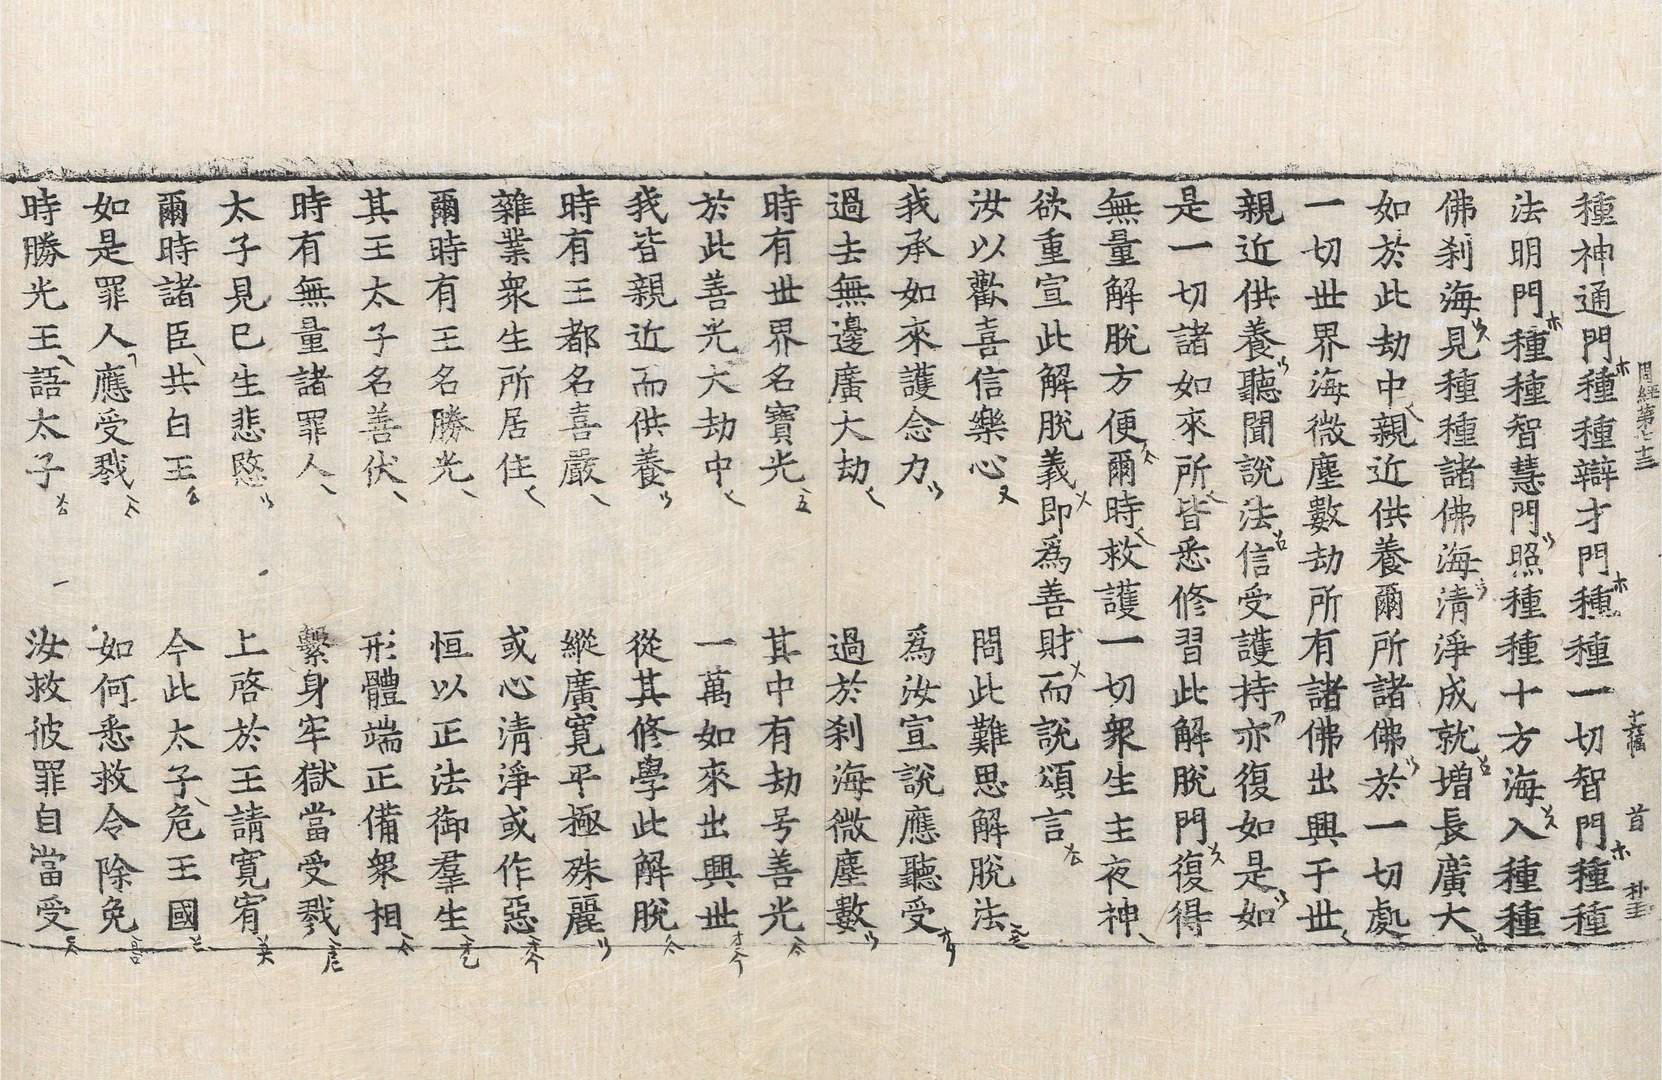 周經第七十三 十六幅 首 朴圭
種神通門種種辯才門種種一切智門種種
法明門種種智慧門照種種十方海入種種
佛刹海見種種諸佛海清淨成就增長廣大
如於此劫中親近供養爾所諸佛於一切處
一切世界海微塵數劫所有諸佛出興于世
親近供養聽聞說法信受護持亦復如是如
是一切諸如來所皆悉修習此解脫門復得
無量解脫方便爾時救護一切衆生主夜神
欲重宣此解脫義即爲善財而說頌言
汝以歡喜信樂心 問此難思解脫法
我承如來護念力 爲汝宣說應聽受
過去無邊廣大劫 過於刹海微塵數
時有世界名寶光 其中有劫号善光
於此善光大劫中 一萬如來出興世
我皆親近而供養 從其修學此解脫
時有王都名喜嚴 縱廣寬平極殊麗
雜業衆生所居住 或心清淨或作惡
爾時有王名勝光 恒以正法御羣生
其王太子名善伏 形體端正備衆相
時有無量諸罪人 繫身牢獄當受戮
太子見已生悲愍 上啓於王請寬宥
爾時諸臣共白王 今此太子危王國
如是罪人應受戮 如何悉救令除免
時勝光王語太子 汝救彼罪自當受